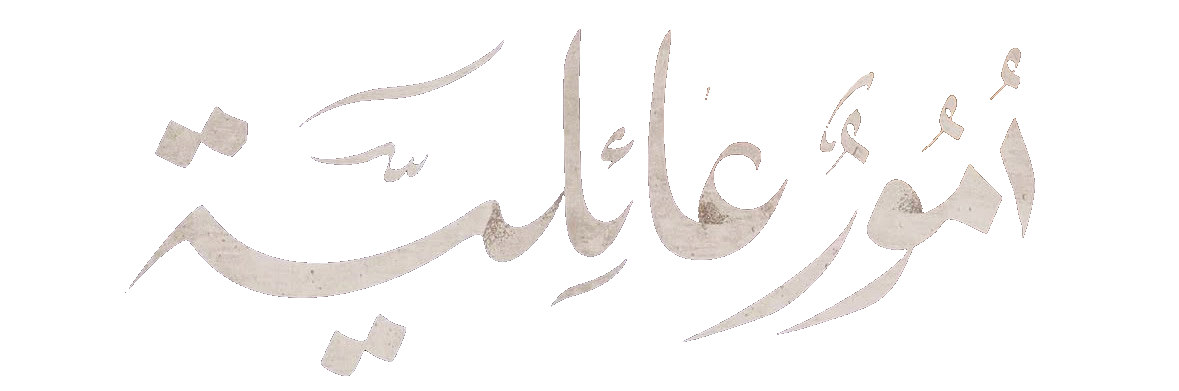 أُمُورٌ عَائِلِيَّة